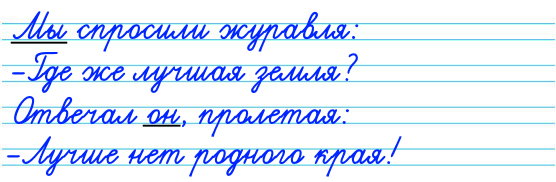 Мы спросили журавля:
-Где же лучшая земля?
Отвечал он, пролетая:
-Лучше нет родного края!